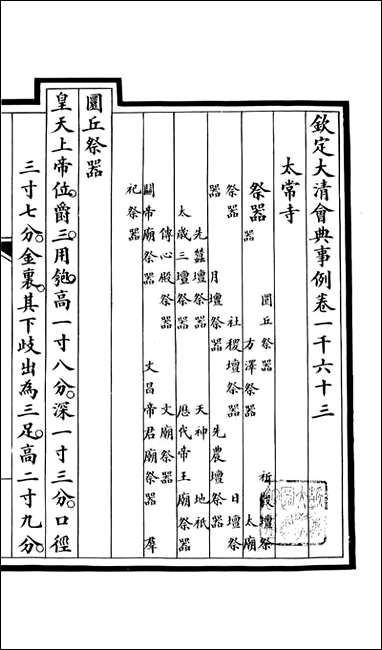 欽定大清會典事例卷一千六十三
太常寺
祭器 圜丘祭器 祈穀壇祭
器 方澤祭器 太廟
祭器 社稷壇祭器 日壇祭
器 月壇祭器 先農壇祭器
先蠶壇祭器 天神 地祇
太歲三壇祭器 歷代帝王廟祭器
傳心殿祭器 文廟祭器
關帝廟祭器 文昌帝君廟祭器 羣
祀祭器
圜丘祭器
皇天上帝位爵三用匏高一寸八分深一寸三分口徑
三寸七分金裏其下歧出為三足高二寸九分